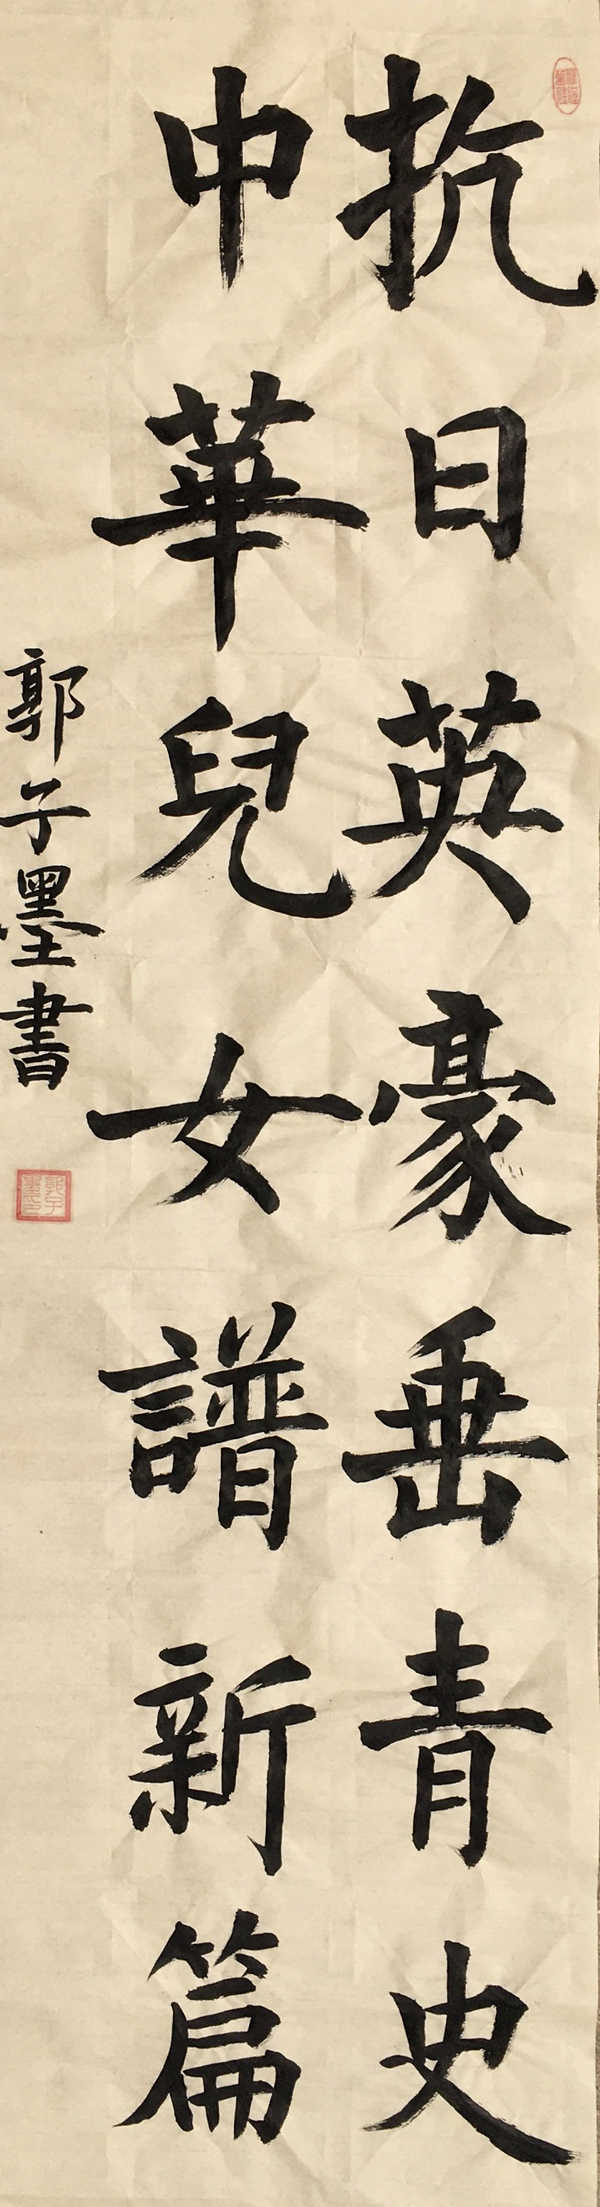 抗日英豪垂青史
中華兒女譜新篇
郭子墨書